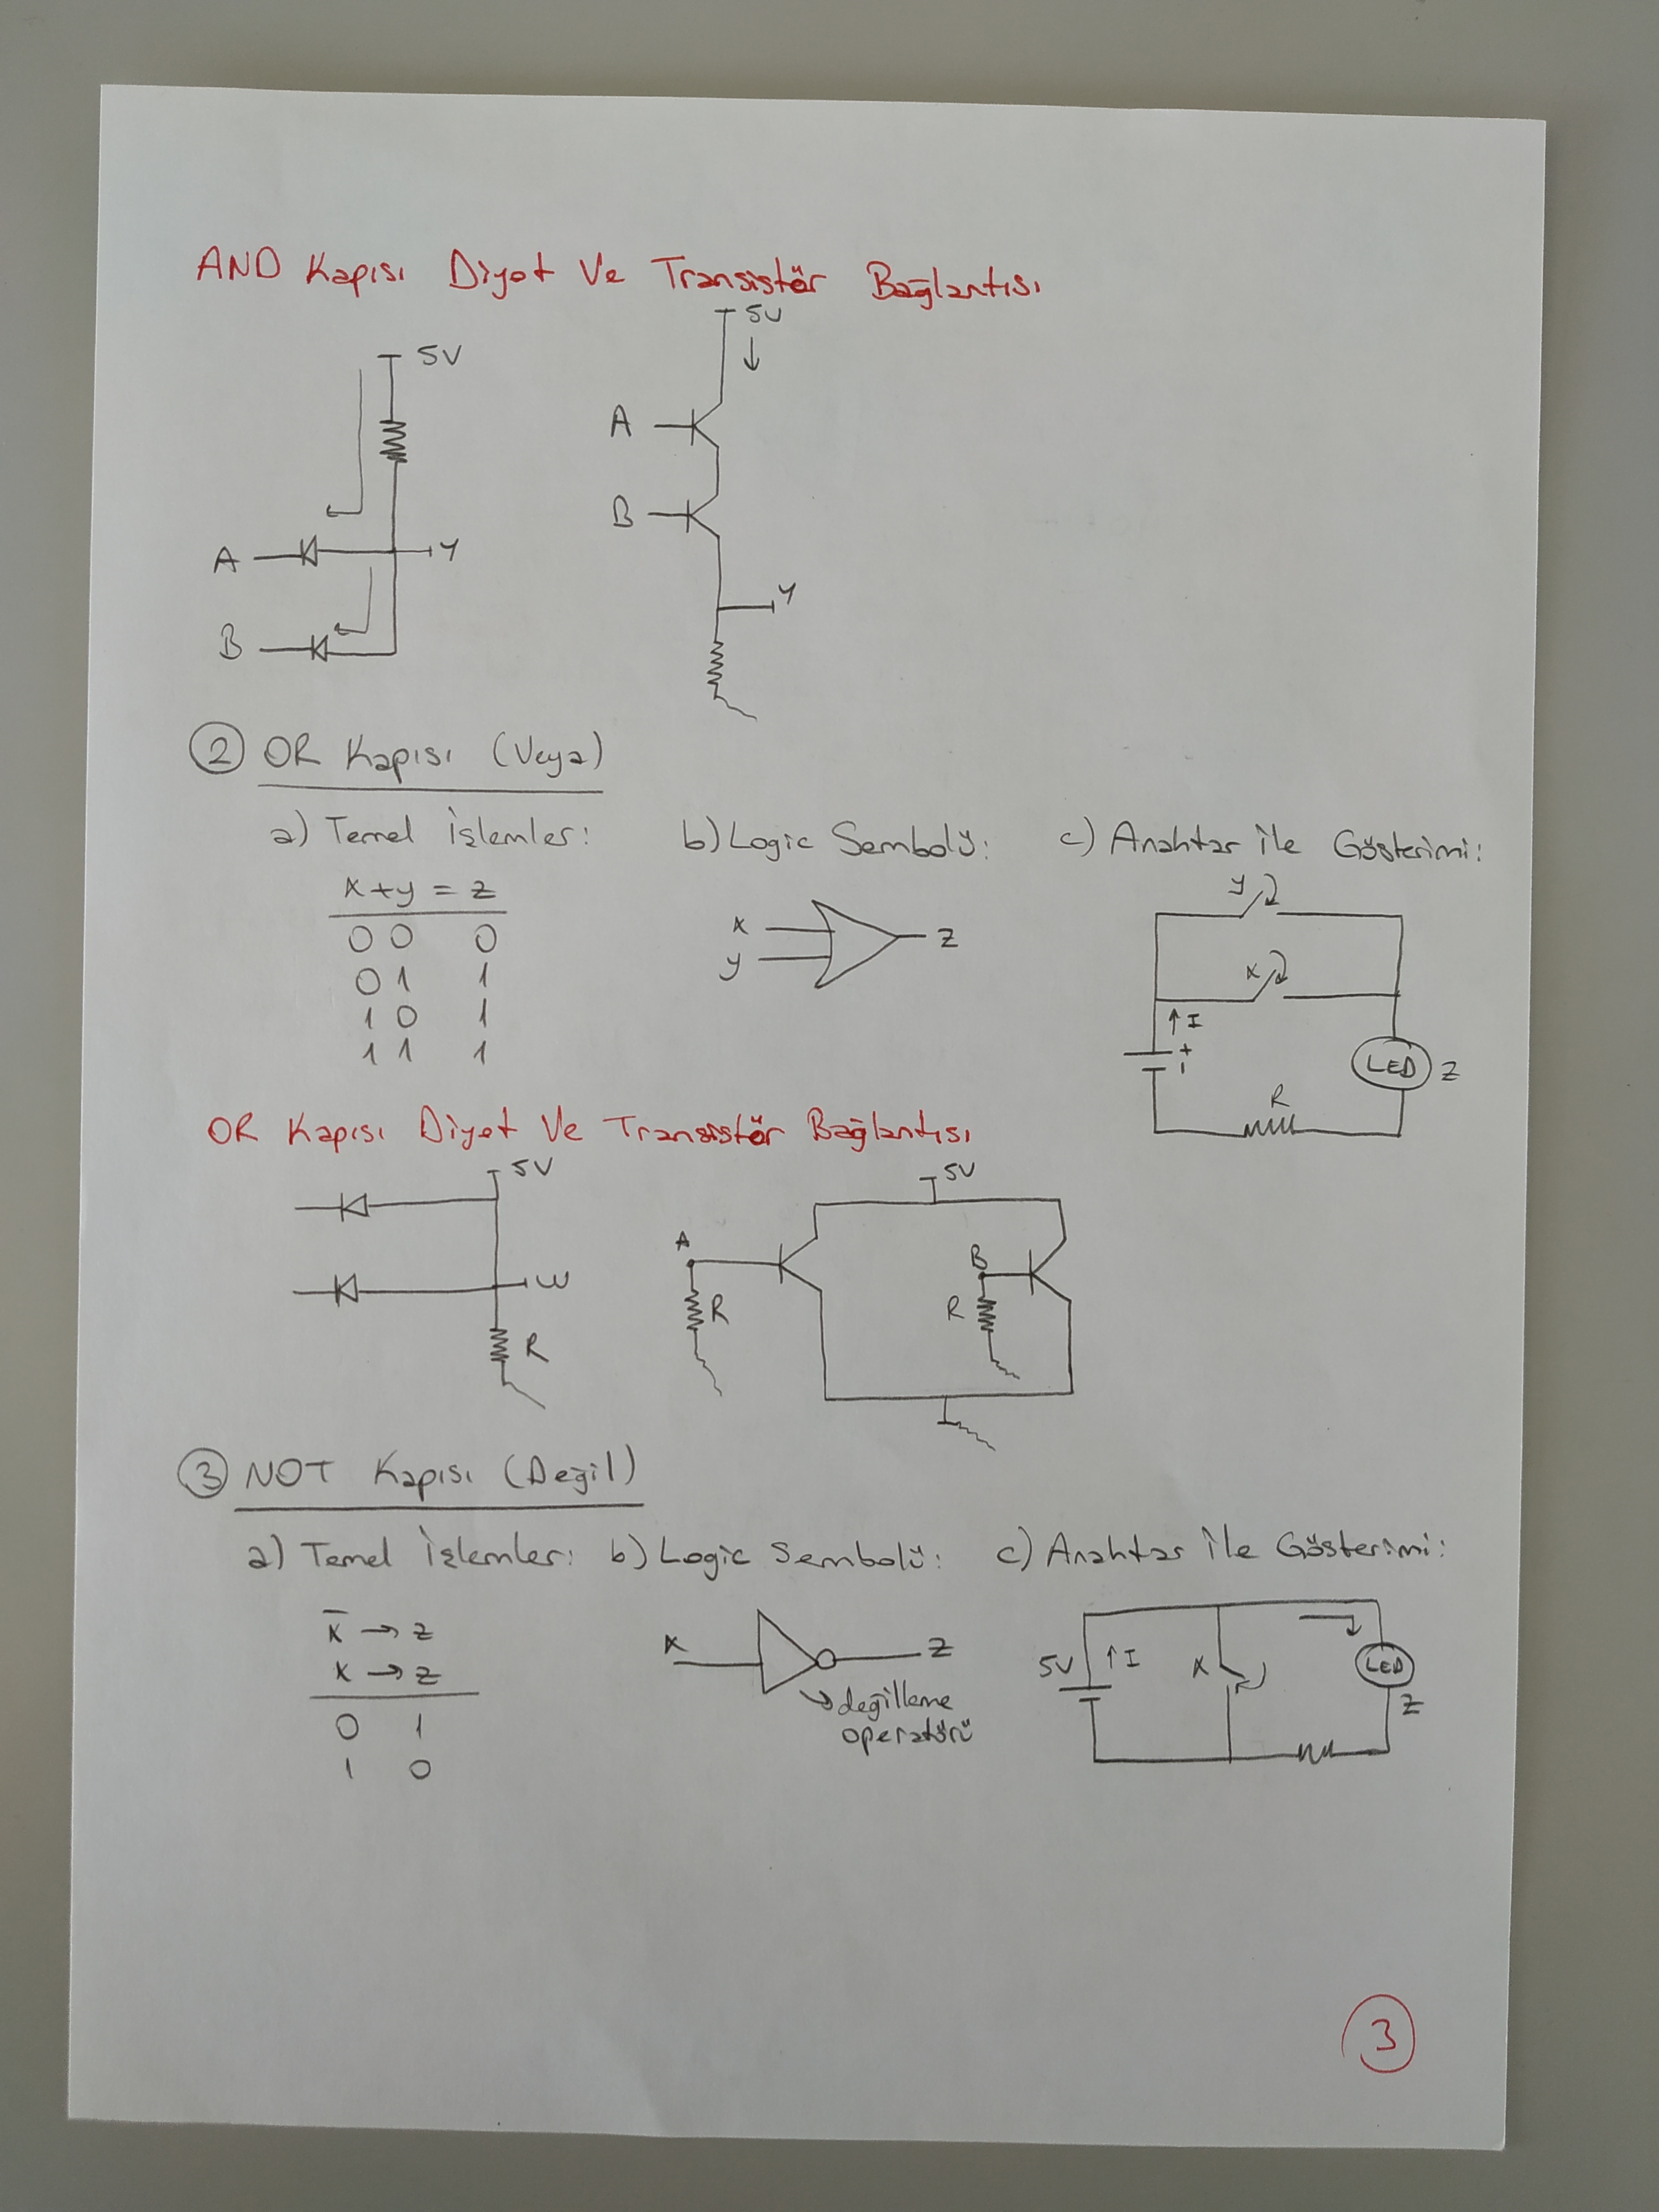 AND Kapısı Diyot Ve Transistör Bağlantısı
5V
A
B
Y
5V
A
B
Y
② OR Kapısı (Veya)
a) Temel İşlemler:
x + y = z
0 0 0
0 1 1
1 0 1
1 1 1
b) Logic Sembolü:
x
y
z
c) Anahtar İle Gösterimi:
y
x
I
+
-
R
LED
z
OR Kapısı Diyot Ve Transistör Bağlantısı
5V
R
A
R
5V
B
R
③ NOT Kapısı (Değil)
a) Temel İşlemler:
x̅ → z
x → z
0 1
1 0
b) Logic Sembolü:
x
z
değilleme
operatörü
c) Anahtar İle Gösterimi:
5V
I
x
LED
z
③